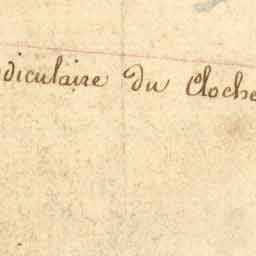 diculaire du Cloche